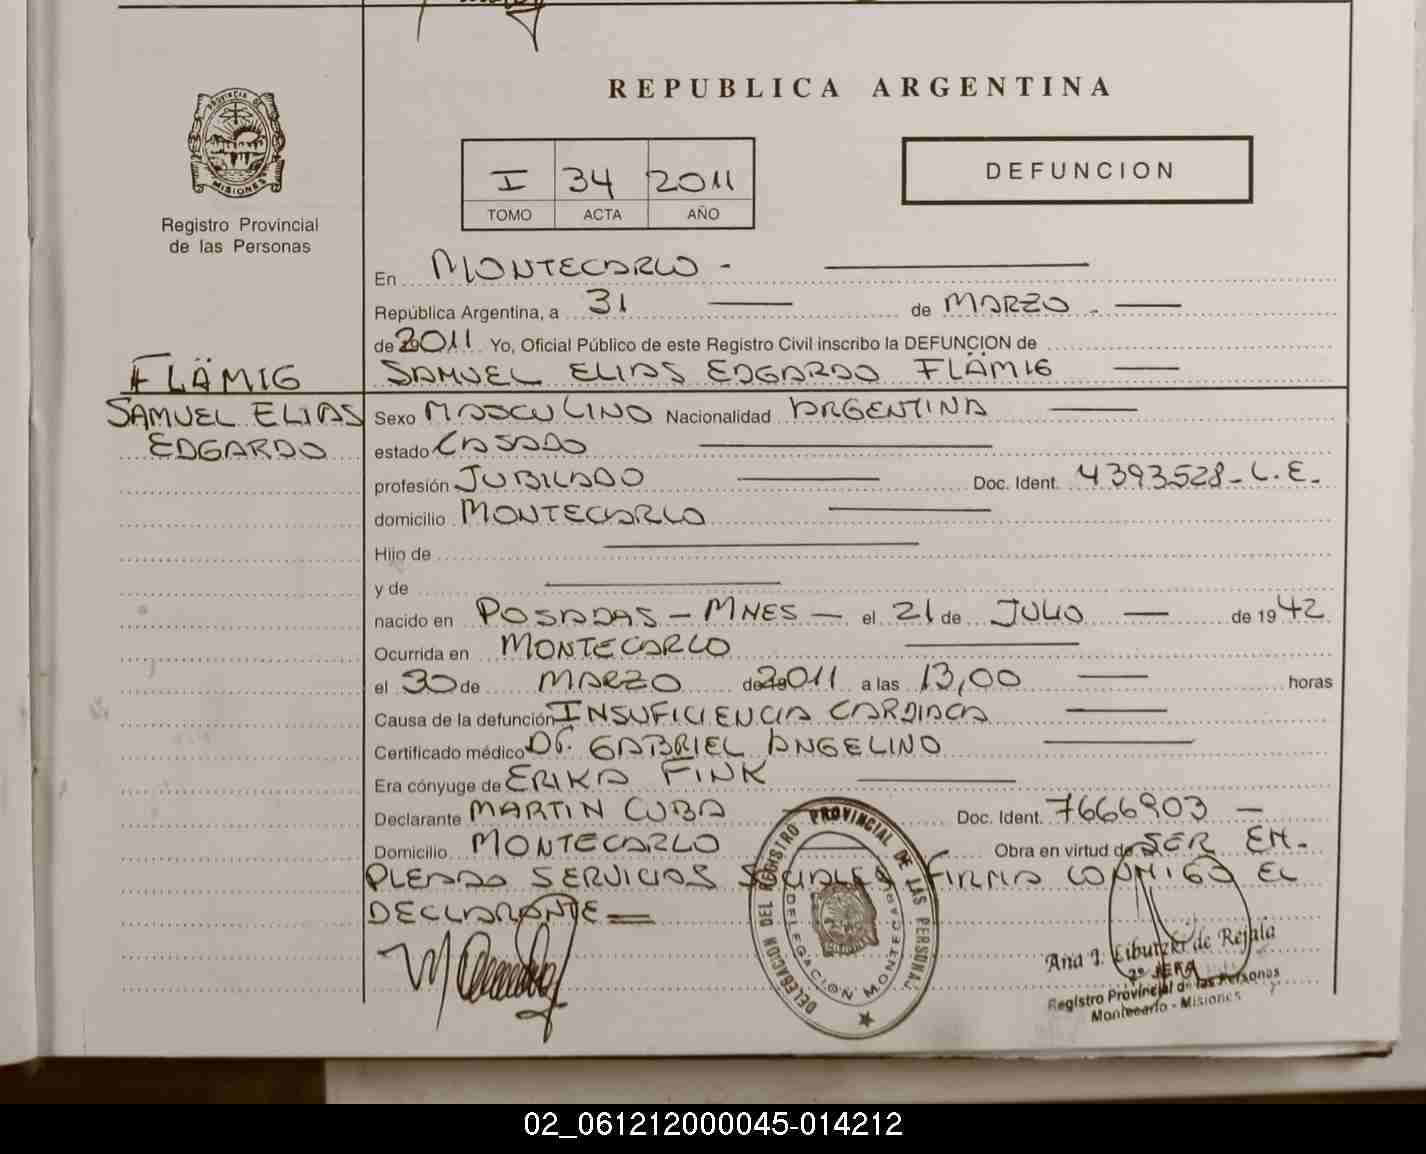 REPUBLICA ARGENTINA
PROVINCIA DE
MISIONES
Registro Provincial
de las Personas
I 34 2011
TOMO ACTA AÑO
DEFUNCION
En MONTECARLO -
República Argentina, a 31 de MARZO
de 2011 Yo, Oficial Público de este Registro Civil inscribo la DEFUNCION de
FLÄMIG
SAMUEL ELIAS EDGARDO FLÄMIG
SAMUEL ELIAS
EDGARDO
Sexo MASCULINO Nacionalidad ARGENTINA
estado CASADO
profesión JUBILADO Doc. Ident. 4393528-L.E.
domicilio MONTECARLO
Hijo de
y de
nacido en POSADAS - MNES - el 21 de JULIO de 1942
Ocurrida en MONTECARLO
el 30 de MARZO de 2011 a las 13,00 horas
Causa de la defunción INSUFICIENCIA CARDIACA
Certificado médico Dr. GABRIEL ANGELINO
Era cónyuge de ERIKA FINK
Declarante MARTIN CUBA Doc. Ident. 7666903 -
Domicilio MONTECARLO Obra en virtud de SER EM-
PLEADO SERVICIOS SOCIALES FIRMA CONMIGO EL
DECLARANTE
DELEGACION DEL REGISTRO PROVINCIAL DE LAS PERSONAS
DELEGACION MONTECARLO
Ana I. de Rejala
2º JEFA
Registro Provincial de las Personas
Montecarlo - Misiones
02_061212000045-014212